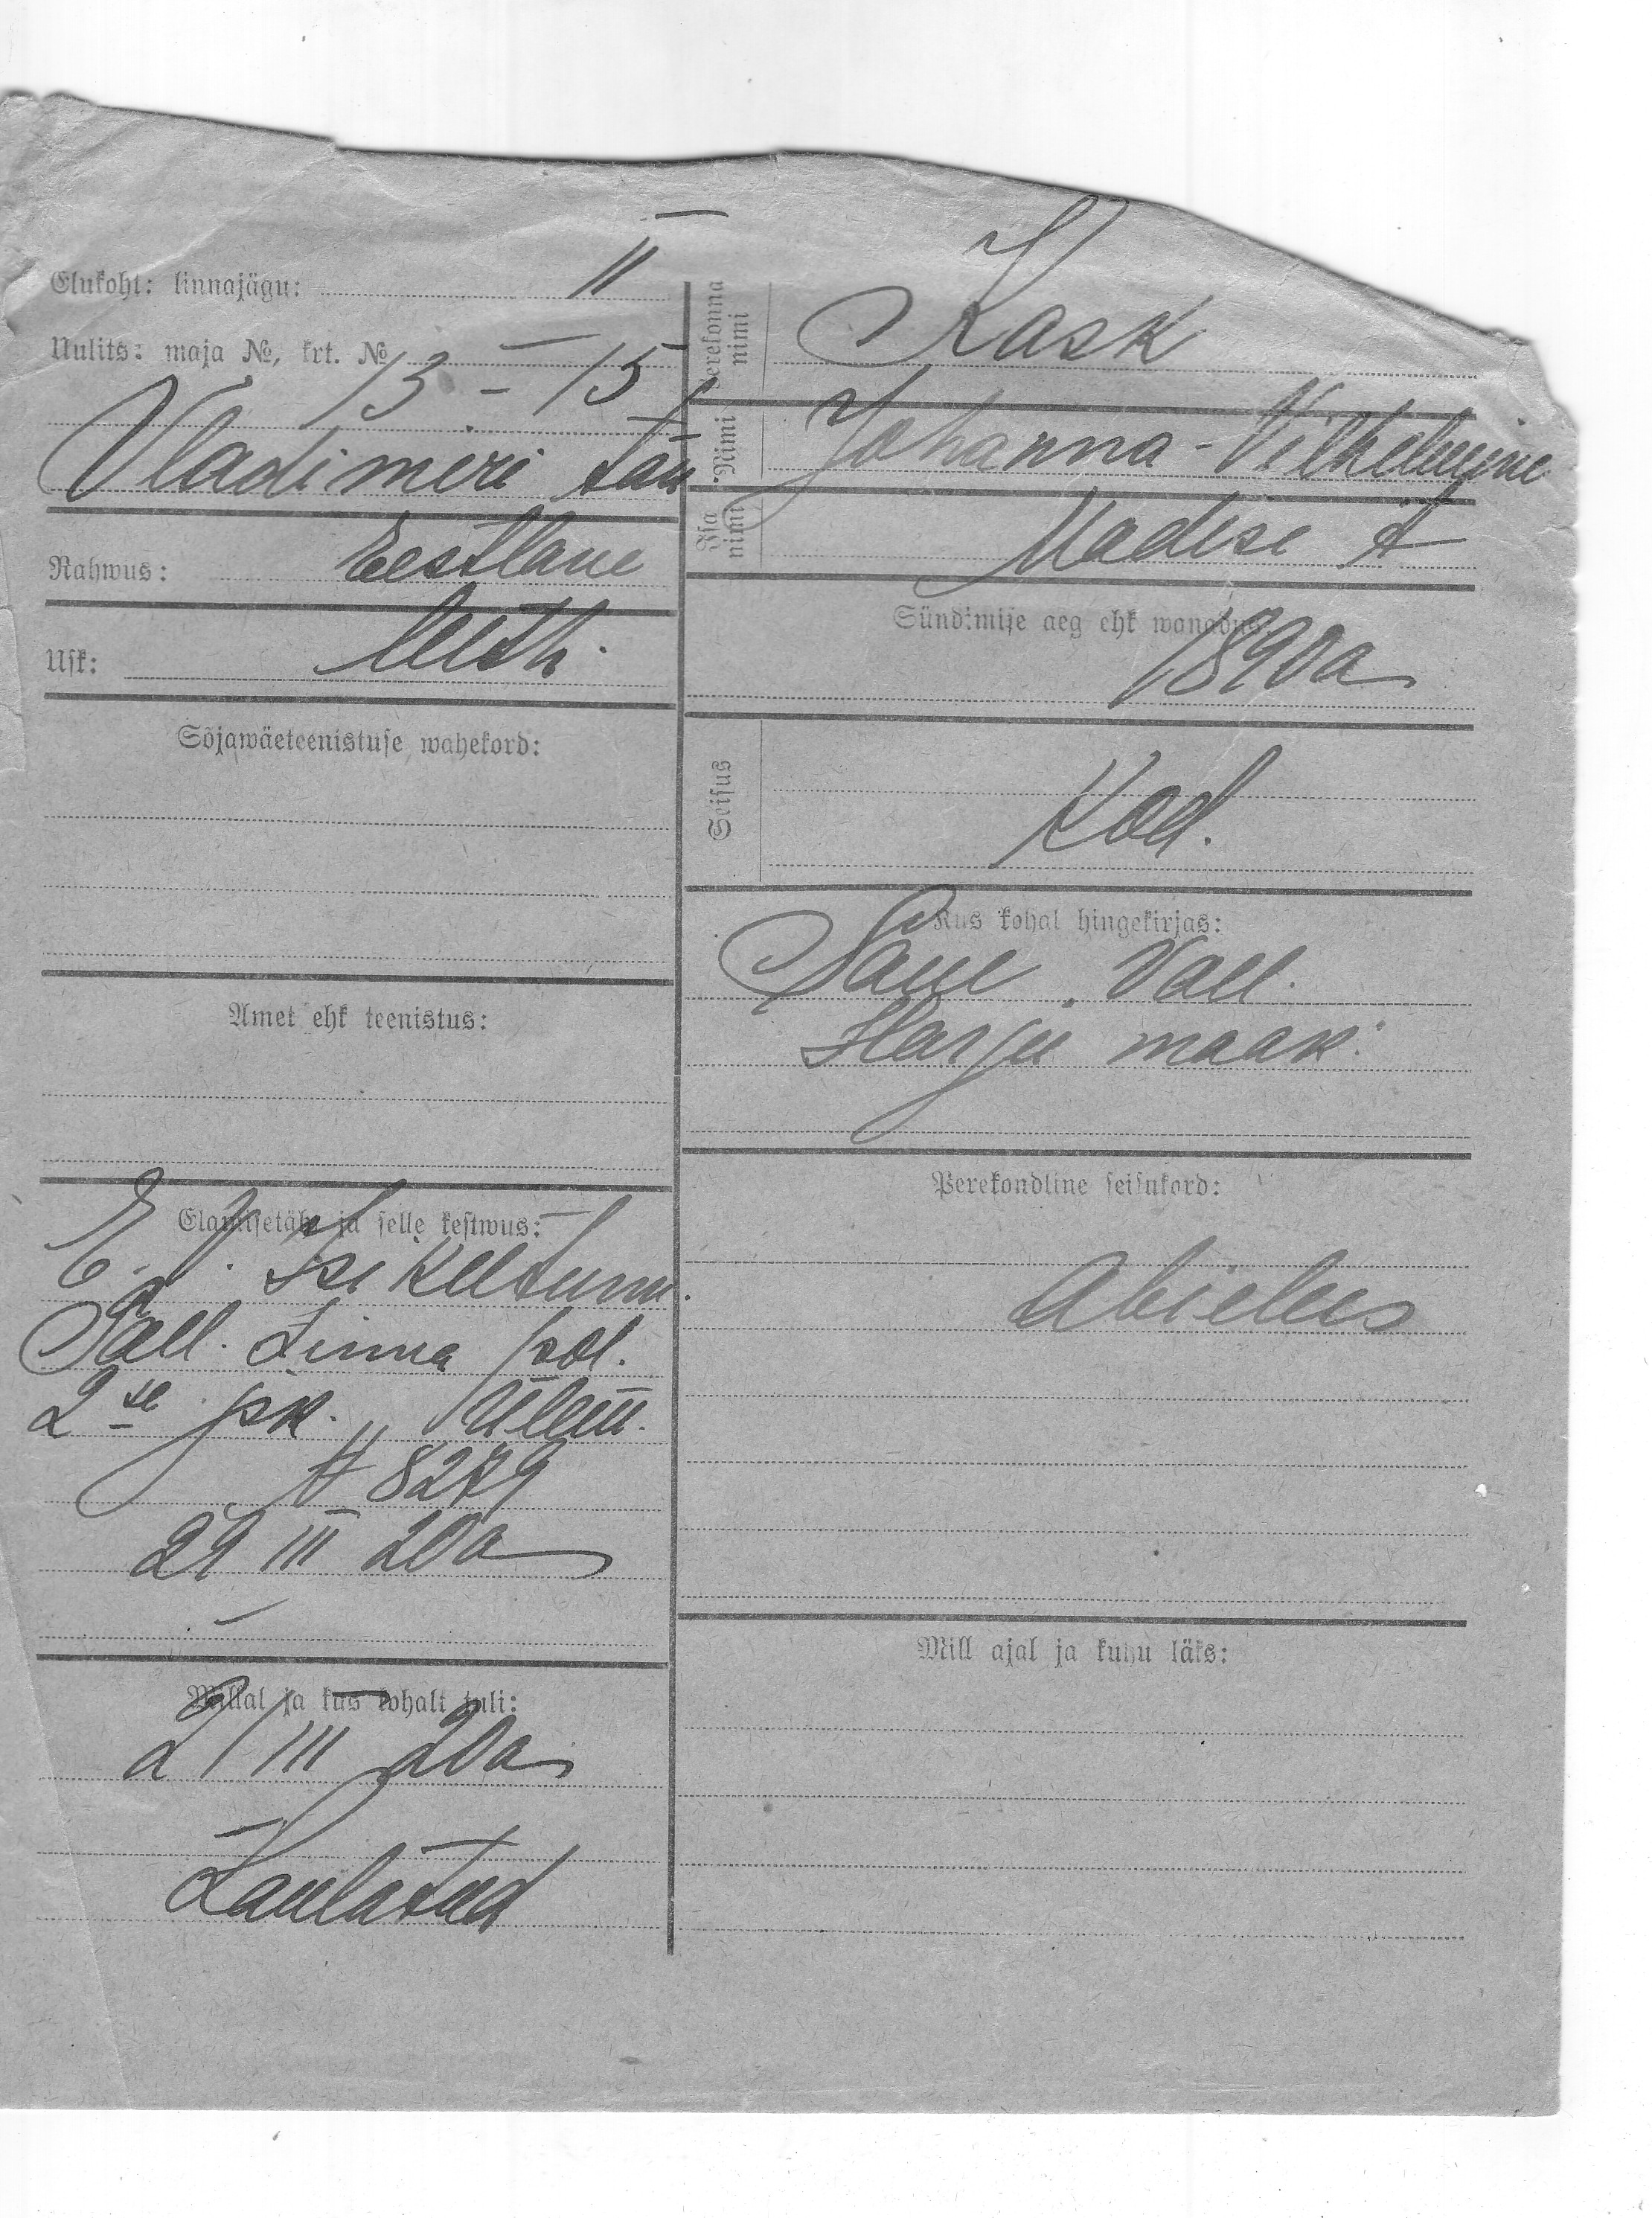 Elukoht: linnajägu: II
Uulits: maja №, krt. №
13 - 15
Vladimeri tän
Rahwus: Eestlane
Usk: Luth.
Sõjawäeteenistuse wahekord:
Amet ehk teenistus:
Elamisetäht ja selle kestwus:
E. V. Isikutunn.
Tall. Linna pol.
2se jsk. Ülem.
№ 8279
29 III 20a
Millal ja kus kohalt tuli:
21 III 20a
Laulatud
Perekonna nimi
Kask
Nimi
Johanna-Vilhelmine
Isa nimi
Madise t
Sündimise aeg ehk wanadus:
1890a
Seisus
Kod.
Kus kohal hingekirjas:
Vall.
Harju maak.
Perekondline seisukord:
Abielus
Mill ajal ja kuhu läks: